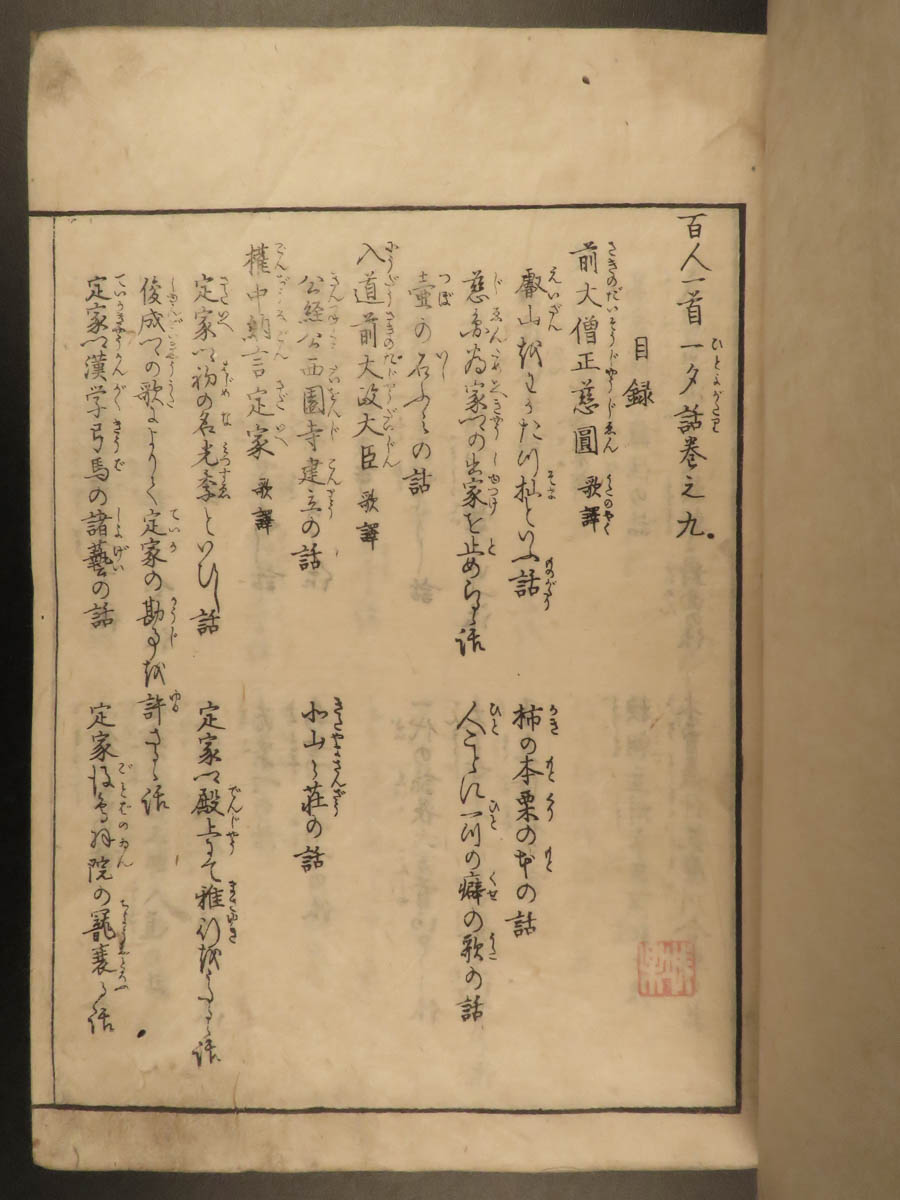 百人一首一夕話巻之九
目録
前大僧正慈圓 歌譯
叡山をわがたつ杣といふ話
柿の本栗の本の話
慈圓為家卿の出家を止めらるゝ話
人ごとに一つの癖の歌の話
壺の石ふみの話
入道前大政大臣 歌譯
公経公西園寺建立の話
北山の荘の話
権中納言定家 歌譯
定家卿初の名光季といひし話
定家卿殿上にて雅行をうたるゝ話
俊成卿の歌によりて定家の勘事を許さるゝ話
定家卿漢学弓馬の諸藝の話
定家後鳥羽院の寵衰る話